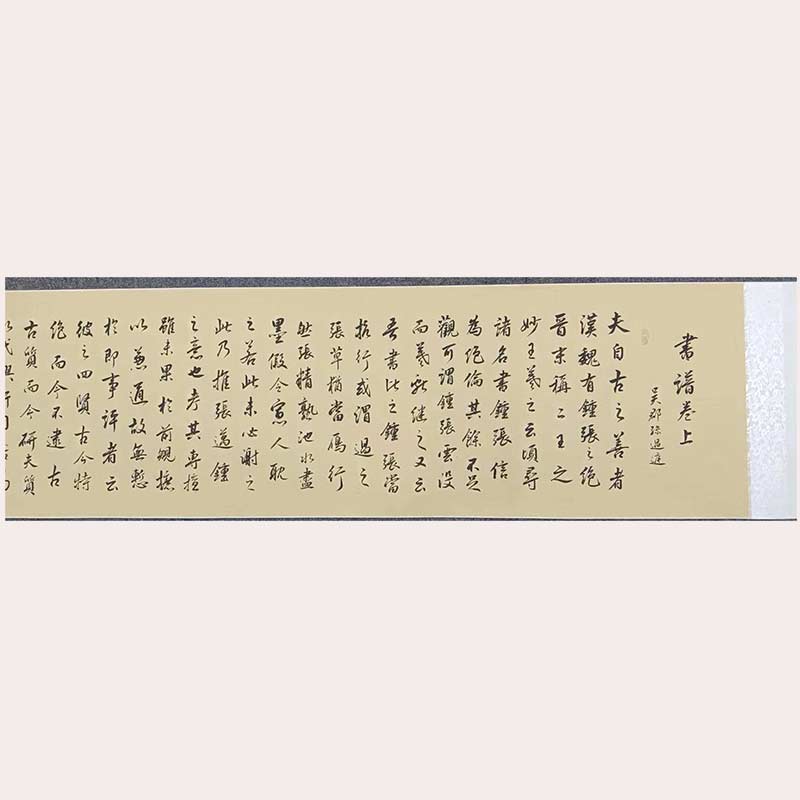 書譜卷上
吴郡孫過庭
夫自古之善者
漢魏有鍾張之绝
晉末稱二王之
妙王羲之云頃尋
諸名書鍾張信
為绝倫其餘不足
觀可謂鍾張雲沒
而羲獻继之又云
吾書比之鍾張當
抗行或謂過之
張草猶當鴈行
然張精熟池水盡
墨假令寡人耽
之若此未必謝之
此乃推張邁鍾
之意也考其專擅
雖未果於前規摭
以兼通故無慙
於即事評者云
彼之四賢古今特
绝而今不逮古
古質而今研夫質